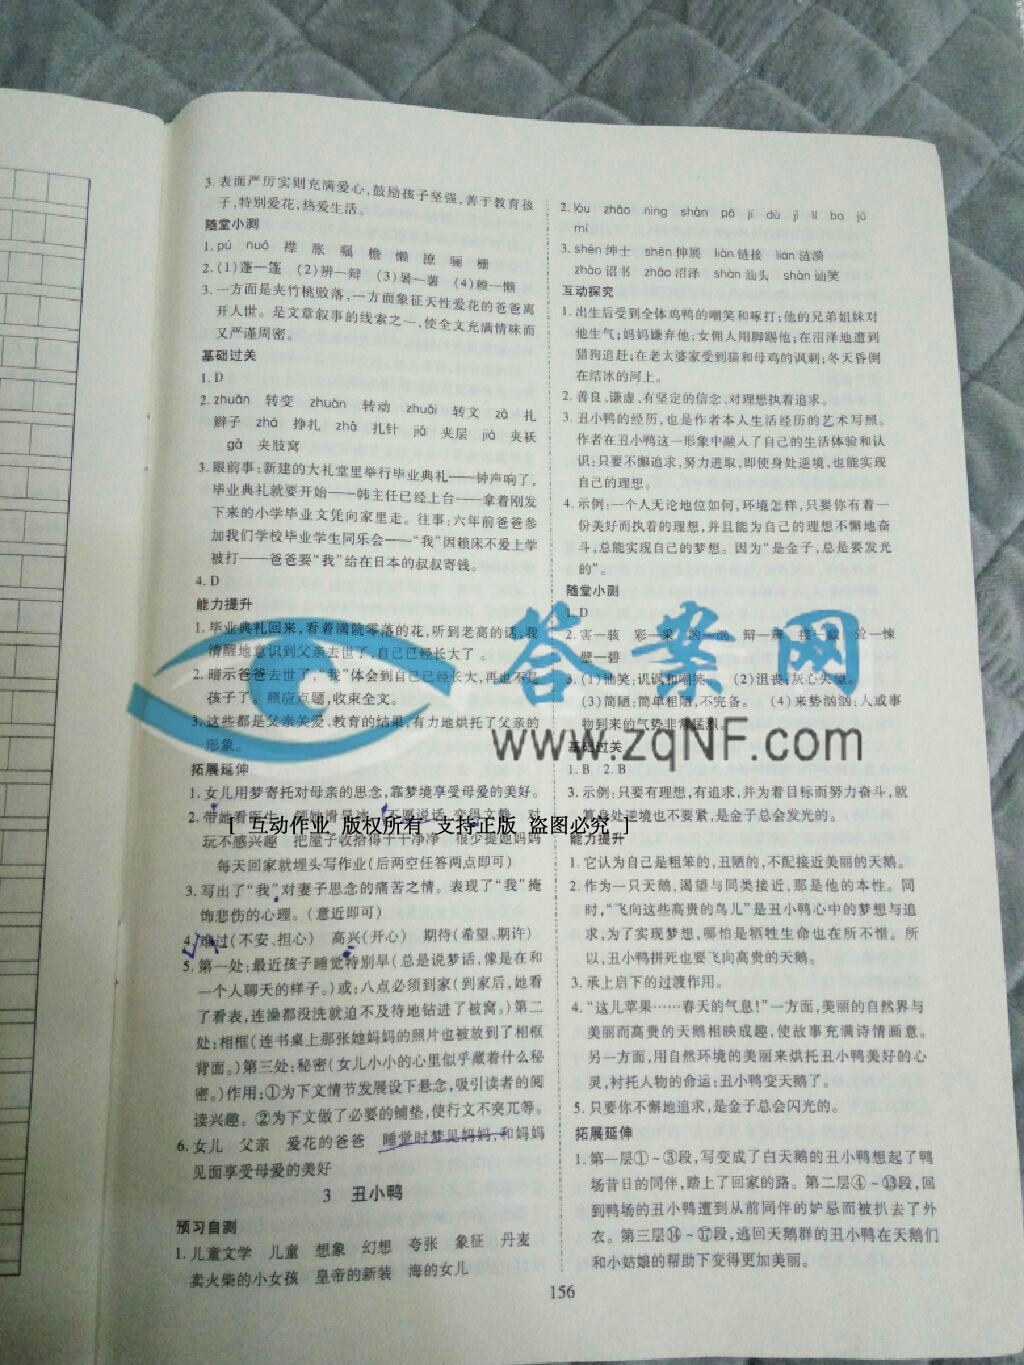 3. 表面严厉实则充满爱心,鼓励孩子坚强,善于教育孩
子,特别爱花,热爱生活。
随堂小测
2. (1)蓬—篷 (2)辨—辩 (3)暑—薯
3. 一方面是夹竹桃败落,一方面象征天性爱花的爸爸离
开人世。是文章叙事的线索之一,使全文充满情味而
又严谨周密。
基础过关
1. D
2. zhuǎn 转变 zhuàn 转动 zhuǎi 转文 zā 扎
辫子 zhá 挣扎 zhā 扎针 jiā 夹层 jiá 夹袄
gā 夹肢窝
3. 眼前事:新建的大礼堂里举行毕业典礼——钟声响了,
毕业典礼就要开始——韩主任已经上台——拿着刚发
下来的小学毕业文凭向家里走。往事:六年前爸爸参
加我们学校毕业学生同乐会——“我”因赖床不爱上学
被打——爸爸要“我”给在日本的叔叔寄钱。
4. D
能力提升
1. 毕业典礼回来,看着满院零落的花,听到老高的话,我
清醒地意识到父亲去世了,自己已经长大了。
2. 暗示爸爸去世了,“我”体会到自己已经长大,再也不是
孩子了。照应点题,收束全文。
3. 这些都是父亲关爱、教育的结果,有力地烘托了父亲的
形象。
拓展延伸
1. 女儿用梦寄托对母亲的思念,靠梦境享受母爱的美好。
2. 带她看医生 领她滑旱冰 不愿说话 变得文静 对
[ 互动作业 版权所有 支持正版 盗图必究 ]
玩不感兴趣 把屋子收拾得干干净净 很少提她妈妈
每天回家就埋头写作业(后两空任答两点即可)
3. 写出了“我”对妻子思念的痛苦之情。表现了“我”掩
饰悲伤的心理。(意近即可)
4. 难过(不安、担心) 高兴(开心) 期待(希望、期许)
5. 第一处:最近孩子睡觉特别早(总是说梦话,像是在和
一个人聊天的样子。)或:八点必须到家(到家后,她看
了看表,连澡都没洗就迫不及待地钻进了被窝。)第二
处:相框(连书桌上那张她妈妈的照片也被放到了相框
背面。)第三处:秘密(女儿小小的心里似乎藏着什么秘
密。)作用:①为下文情节发展设下悬念,吸引读者的阅
读兴趣。②为下文做了必要的铺垫,使行文不突兀等。
6. 女儿 父亲 爱花的爸爸 睡觉时梦见妈妈,和妈妈
见面享受母爱的美好
3 丑小鸭
预习自测
1. 儿童文学 儿童 想象 幻想 夸张 象征 丹麦
卖火柴的小女孩 皇帝的新装 海的女儿
3. shēn 绅士 shēn 伸展 liàn 链接 lián 涟漪
zhào 诏书 zhǎo 沼泽 shàn 汕头 shàn 讪笑
互动探究
1. 出生后受到全体鸡鸭的嘲笑和啄打;他的兄弟姐妹对
他生气;妈妈嫌弃他;女佣人用脚踢他;在沼泽地遭到
猎狗追赶;在老太婆家受到猫和母鸡的讽刺;冬天昏倒
在结冰的河上。
2. 善良、谦虚、有坚定的信念、对理想执着追求。
3. 丑小鸭的经历,也是作者本人生活经历的艺术写照。
作者在丑小鸭这一形象中融入了自己的生活体验和认
识:只要不懈追求,努力进取,即使身处逆境,也能实现
自己的理想。
4. 示例:一个人无论地位如何,环境怎样,只要你有着一
份美好而执着的理想,并且能为自己的理想不懈地奋
斗,总能实现自己的梦想。因为“是金子,总是要发光
的”。
随堂小测
1. D
2. 害—骇 彩—采
壁—碧
3. (1)讪笑:讥讽和嘲笑。 (2)沮丧:灰心失望。
(3)简陋:简单粗陋,不完备。 (4)来势汹汹:人或事
物到来的气势非常猛烈。
基础过关
1. B 2. B
3. 示例:只要有理想,有追求,并为着目标而努力奋斗,就
算身处逆境也不要紧,是金子总会发光的。
能力提升
1. 它认为自己是粗笨的,丑陋的,不配接近美丽的天鹅。
2. 作为一只天鹅,渴望与同类接近,那是他的本性。同
时,“飞向这些高贵的鸟儿”是丑小鸭心中的梦想与追
求,为了实现梦想,哪怕是牺牲生命也在所不惜。所
以,丑小鸭拼死也要飞向高贵的天鹅。
3. 承上启下的过渡作用。
4. “这儿苹果……春天的气息!”一方面,美丽的自然界与
美丽而高贵的天鹅相映成趣,使故事充满诗情画意。
另一方面,用自然环境的美丽来烘托丑小鸭美好的心
灵,衬托人物的命运:丑小鸭变天鹅了。
5. 只要你不懈地追求,是金子总会闪光的。
拓展延伸
1. 第一层①~③段,写变成了白天鹅的丑小鸭想起了鸭
场昔日的同伴,踏上了回家的路。第二层④~⑬段,回
到鸭场的丑小鸭遭到从前同伴的妒忌而被扒去了外
衣。第三层⑭~⑰段,逃回天鹅群的丑小鸭在天鹅们
和小姑娘的帮助下变得更加美丽。
156
答案网
www.zqNF.com